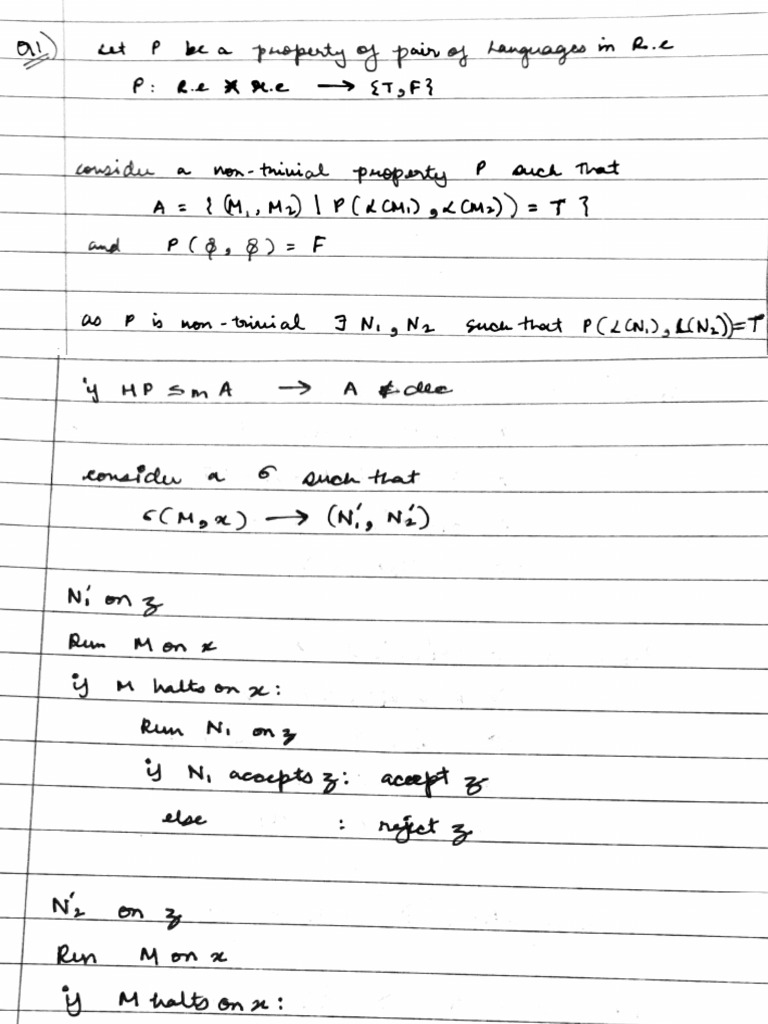 Q1) Let P be a property of pair of languages in R.e
P: R.e × r.e → {T, F}
consider a non-trivial property P such that
A = { (M₁, M₂) | P(L(M₁), L(M₂)) = T }
and P(φ, φ) = F
as P is non-trivial ∃ N₁, N₂ such that P(L(N₁), L(N₂)) = T
if HP ≤m A → A ∉ dec
consider a σ such that
σ(M, x) → (N₁', N₂')
N₁' on z
Run M on x
if M halts on x:
Run N₁ on z
if N₁ accepts z: accept z
else : reject z
N₂' on z
Run M on x
if M halts on x: